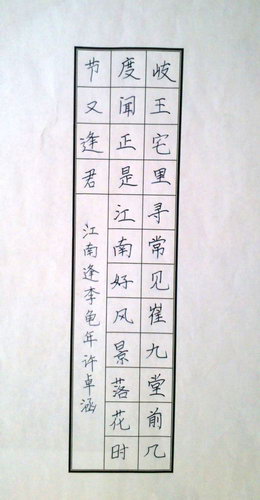 岐王宅里寻常见崔九堂前几
度闻正是江南好风景落花时
节又逢君
江南逢李龟年许卓涵